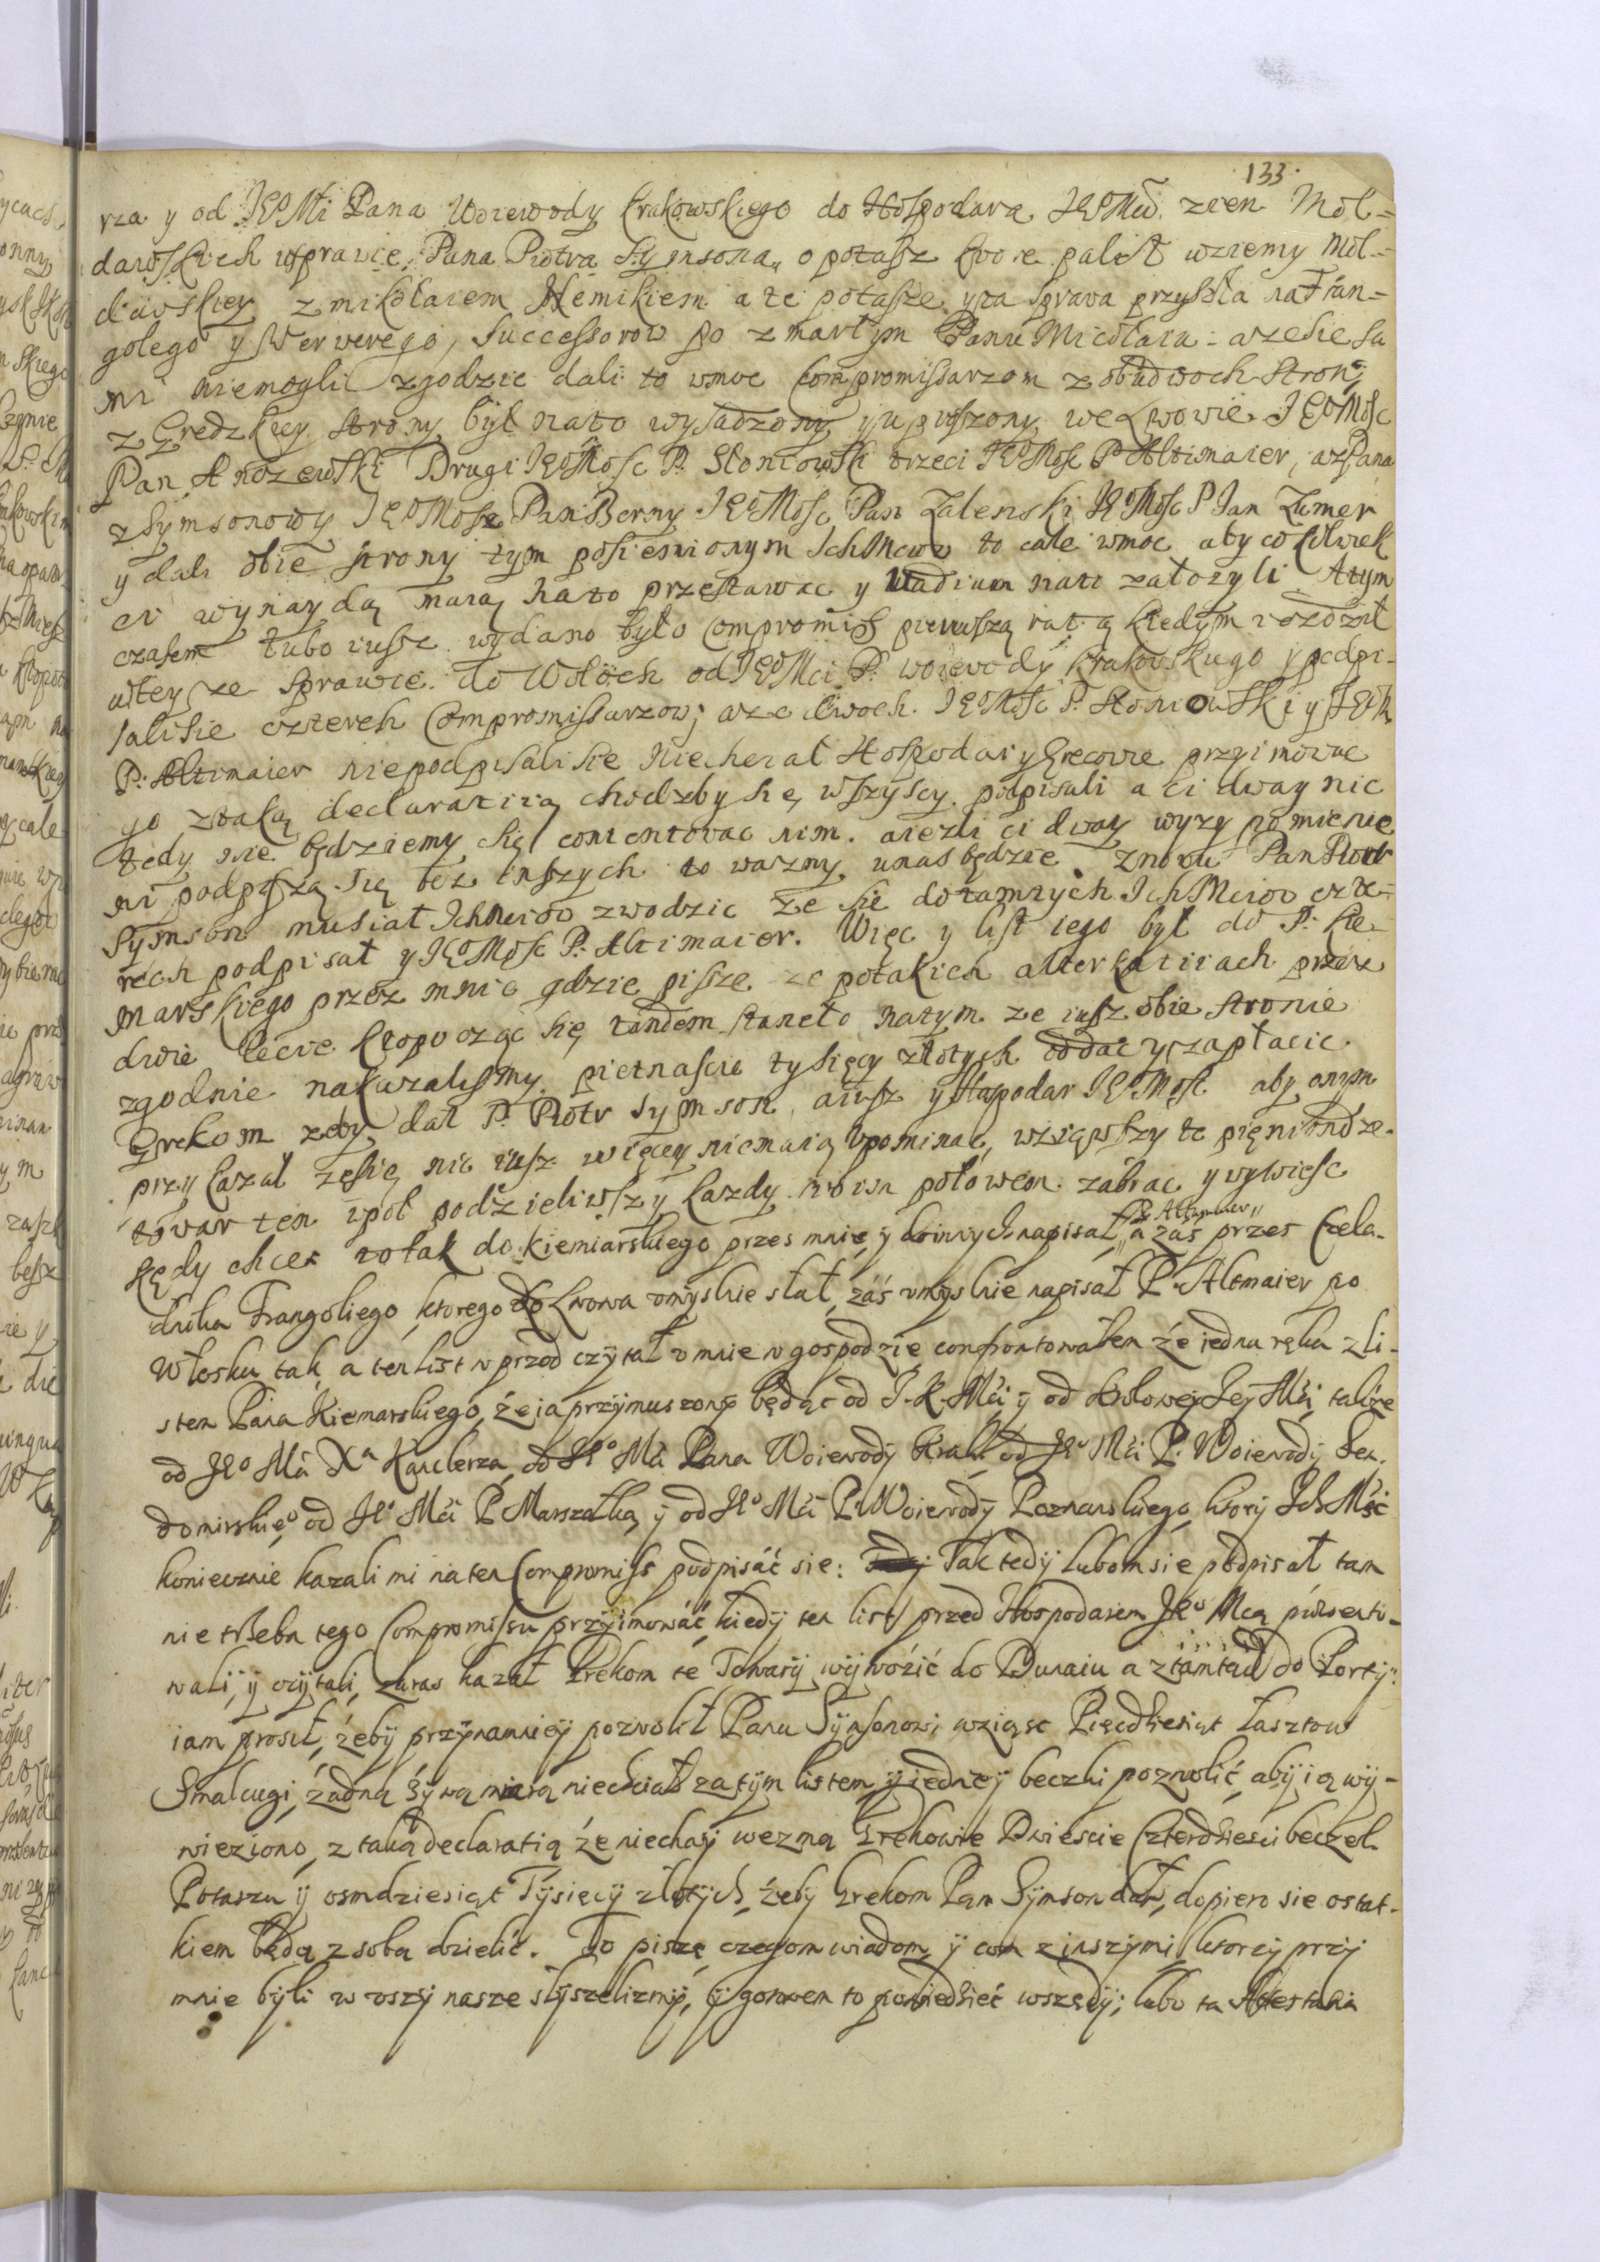 133.
rza y od JE°Mci Pana Woiewody krakowskiego do Hospodara JE°Mci ziem Mol=
dawskich wsprawie Pana Piotra Symsona, o potasz ktore palił wziemy Mol=
dawskiey z mikołaiem Hemikiem a te potasze yta sprawa przyszła na Fran=
golego y Werwerego, Successorow po zmarłym Panu Micołaiu: aze sie sa
mi niemogli zgodzic dali to wmoc Compromissarzom z obudwoch stron;
z Gredzkiey strony był nato wysadzony yupuszony we Lwowie JE°Mosc
Pan Andzewski Drugi JE°Mosc P. Słoniowski trzeci JE°Mosc P Altimaier, a zPana
z Symsonowy JE°Mosc Pan Berny JE°Mosc Pan Zalenski JE°Mosc P Jan Zumer
y dali obie strony tym pomienionym IchMciom to całe wmoc aby co kolwiek
ci wynaydą maią nato przestawac y Vadium nato załozyli Atym
czasem lubo iusz wydano było Compromiss pierwszą ratą kiedym iezdził
wtey ze sprawie do Wołoch od JE°Mci P. woiewody krakowskiego y podpi=
salisie czterech Compromissarzow; a ze dwoch JE°Mosc P. Słoniowski y JE°M
P. Altimaier niepodpisali sie Niechciał Hospodar y Grecowie przyimowac
go ztaką declaratią chodzby się wszyscy podpisali a ci dway nie
tedy nie będziemy się contentowac nim. aiezli ci dway wyzy pomienie
ni podpiszą się bez inszych to wazny unas będzie. Znowu Pan Piotr
Symson musiał Ichmciow zwodzic ze sie do tamtych IchMciow czte=
rech podpisał y JE°Mosc P. Altimaier. Więc y list iego był do P. Kie=
marskiego przez mnie gdzie pisze ze potakich alterkatiiach przez
dwie lecie kłopocząc się tandem staneło natym ze iusz obie stronie
zgodnie nakazalismy pietnascie tysięcy złotych oddac y zapłacic
Grekom zeby dał P. Piotr Symson, aiusz y Hospodar JE°Mosc aby onym
przykazał zesię nic iusz więcey niemaią upominac, wziąwszy te pięniondze.
towar ten wpoł podzieliwszy kazdy swoią połowem zabrac y wywiesc
kędy chce. to tak do Kiemiarskiego przes mnię ÿ do innych napisał P. Altimaier, a zaś przes Czela=
dnika Frangoliego, ktorego do Lwowa umyslnie słał, zaś umyslnie napisał P. Altmaier po
Włosku tak, a ten list w przod czÿtał u mnie w gospodzie confrontowałem źe iedna ręka z li-
stem Pana Kiemarskiego, źe ia przÿmuszonÿ będąc od J.K.Mći ÿ od Krolowej Jeÿ Mći, także
od Je° Mći Xa Kanclerza, od Je° Mći Pana Woiewodÿ Krak: od Je° Mći P. Woiewodÿ Sen-
domirskie° od Je° Mći P. Marszałka ÿ od Je° Mći P. Woiewodÿ Poznanskiego, ktorÿ Ich Mść
koniecznie kazali mi na ten Compromiss podpisáć sie: Tak tedÿ lubom sie podpisał tam
nie trzeba tego Compromissu przÿimowáć, kiedÿ ten list przed Hospodarem Je° Mcią praesento-
wali, ÿ czÿtali, zaras kazał Grekom te Towarÿ wÿwoźić do Dunaiu a ztamtąd do Portÿ:
iam prosił, żebÿ przÿnamnieÿ pozwolił Panu Sÿmsonowi wziąsc Pięcdziesiąt łasztow
Smalcugi, źadną źÿwą miarą niechciał za tÿm listem ÿ iedneÿ beczki pozwolić, abÿ ią wÿ-
wieziono, z taką declaratią źe niechaÿ wezmą Grekowie Dwiescie Czterdziesci beczek
Potaszu ÿ osmdziesiąt Tÿsięcÿ złotÿch, źebÿ Grekom Pan Sÿmson dał, dopiero sie ostat-
kiem będą z sobą dzielić. To piszę czegom wiadom, ÿ com z inszÿmi, ktorzÿ przÿ
mnie bÿli w uszÿ nasze słÿszelizmÿ, ÿ gotowem to powiedzieć wszędÿ; lubo ta Attestatia